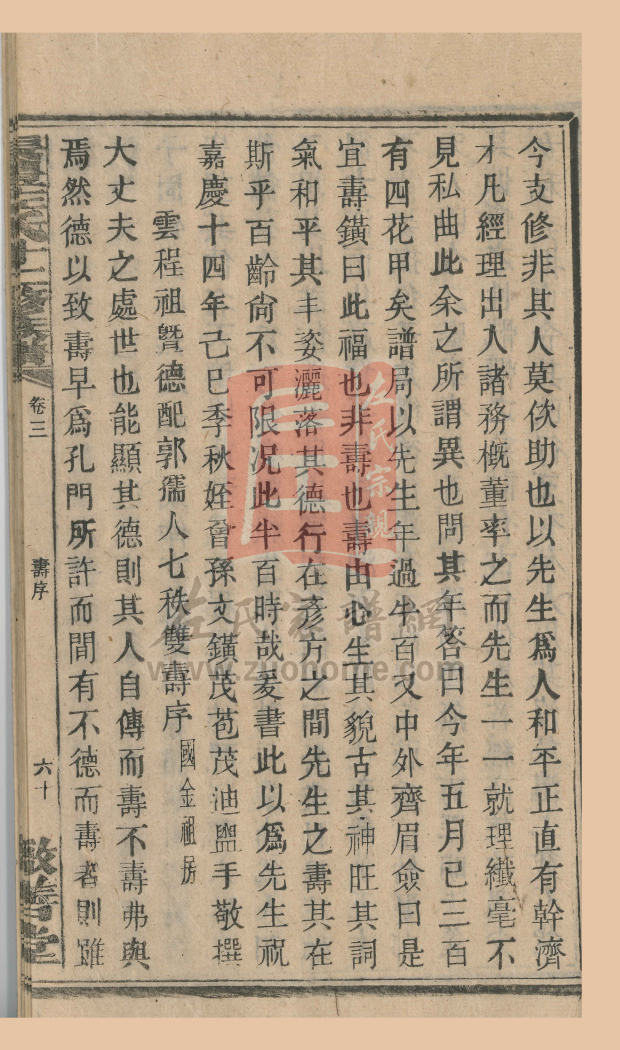 今支修非其人莫佽助也以先生爲人和平正直有幹濟
才凡經理出入諸務概董率之而先生一一就理纖毫不
見私曲此余之所謂異也問其年答曰今年五月已三百
有四花甲矣譜局以先生年過半百又中外齊眉僉曰是
宜壽鐄曰此福也非壽也壽由心生其貌古其神旺其詞
氣和平其丰姿灑落其德行在彥方之間先生之壽其在
斯乎百齡尙不可限况此半百時哉爰書此以爲先生祝
嘉慶十四年己巳季秋姪曾孫文鐄茂苞茂油盥手敬撰
雲程祖曁德配郭孺人七秩雙壽序 國金祖房
大丈夫之處世也能顯其德則其人自傳而壽不壽弗與
焉然德以致壽早爲孔門所許而間有不德而壽者則雖
左氏十二修族譜
卷三
壽序
六十
敬善堂
左氏宗親
左氏家譜網
www.zuohome.com